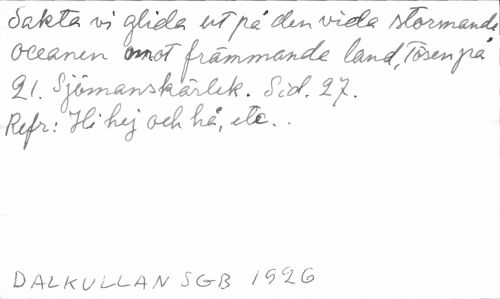 Sakta vi glida ut på den vida stormande
oceanen mot främmande land, Tösen på
21. Sjömanskärlek. Sid. 27.
Refr: Hi hej och hå, etc..
DALKULLAN SGB 1926